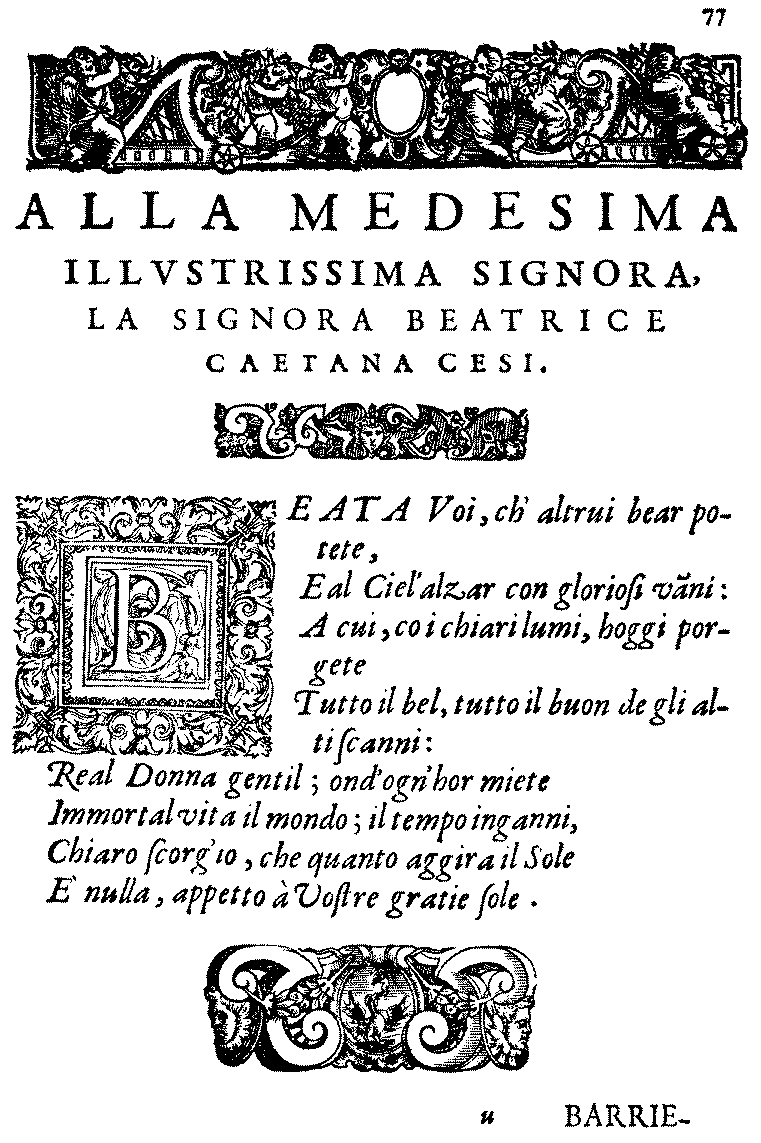 77
ALLA MEDESIMA
ILLVSTRISSIMA SIGNORA,
LA SIGNORA BEATRICE
CAETANA CESI.
BEATA Voi, ch' altrui bear po-
tete,
E al Ciel' alzar con gloriosi vãni:
A cui, co i chiari lumi, hoggi por-
gete
Tutto il bel, tutto il buon de gli al-
ti scanni:
Real Donna gentil; ond' ogn' hor miete
Immortal vita il mondo; il tempo inganni,
Chiaro scorg' io, che quanto aggira il Sole
E' nulla, appetto à Vostre gratie sole.
u BARRIE-